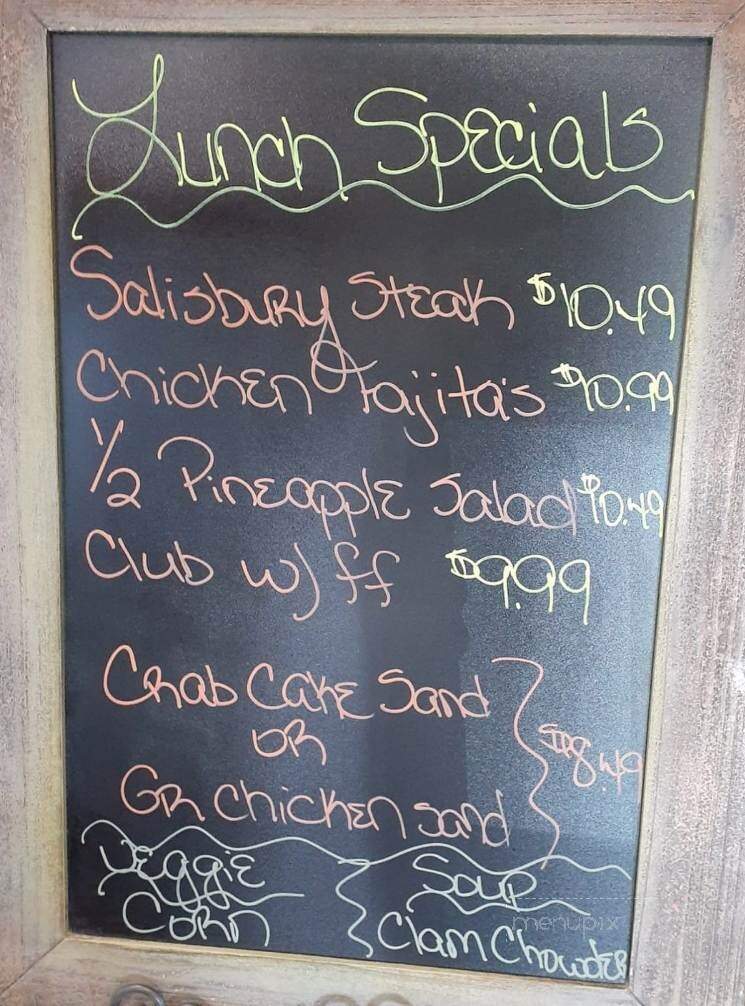 Lunch Specials
Salisbury Steak $10.49
Chicken fajita's $10.99
1/2 Pineapple Salad $10.49
Club w/ ff $9.99
Crab Cake Sand
OR
GR Chicken Sand
$8.49
Veggie
Corn
Soup
Clam Chowder
menupix